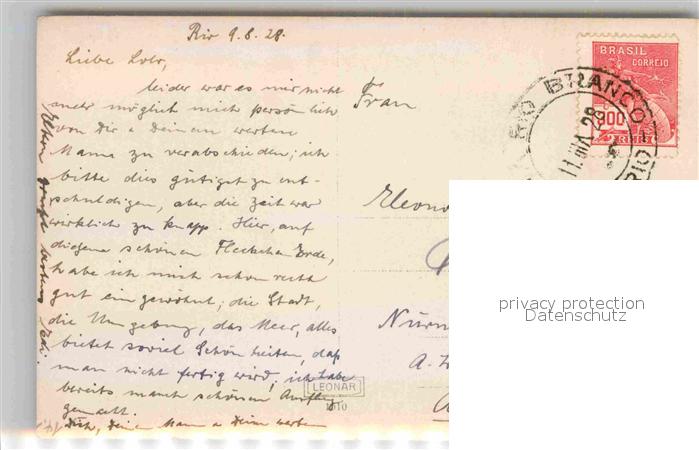 Rio 9.8.28.
Liebe Lolo,
leider war es mir nicht
mehr möglich mich persönlich
von Dir & Deinem werten
Mama zu verabschieden; ich
bitte dies gütigst zu ent-
schuldigen, aber die Zeit war
wirklich zu knapp. Hier, auf
diesem schönen Fleckchen Erde,
habe ich mich schon recht
gut eingewöhnt; die Stadt,
die Umgebung, das Meer, alles
bietet soviel Schönheiten, daß
man nicht fertig wird, ich habe
bereits manch schönen Ausflug
gemacht.
Dich, Deine Mama & Deine werten
Eltern grüßt bestens
Frau
Eleono
Nürn
A.
BRASIL
CORREIO
300
RÉIS
RIO BRANCO
RIO
11.VIII 28
LEONAR
1010
privacy protection
Datenschutz